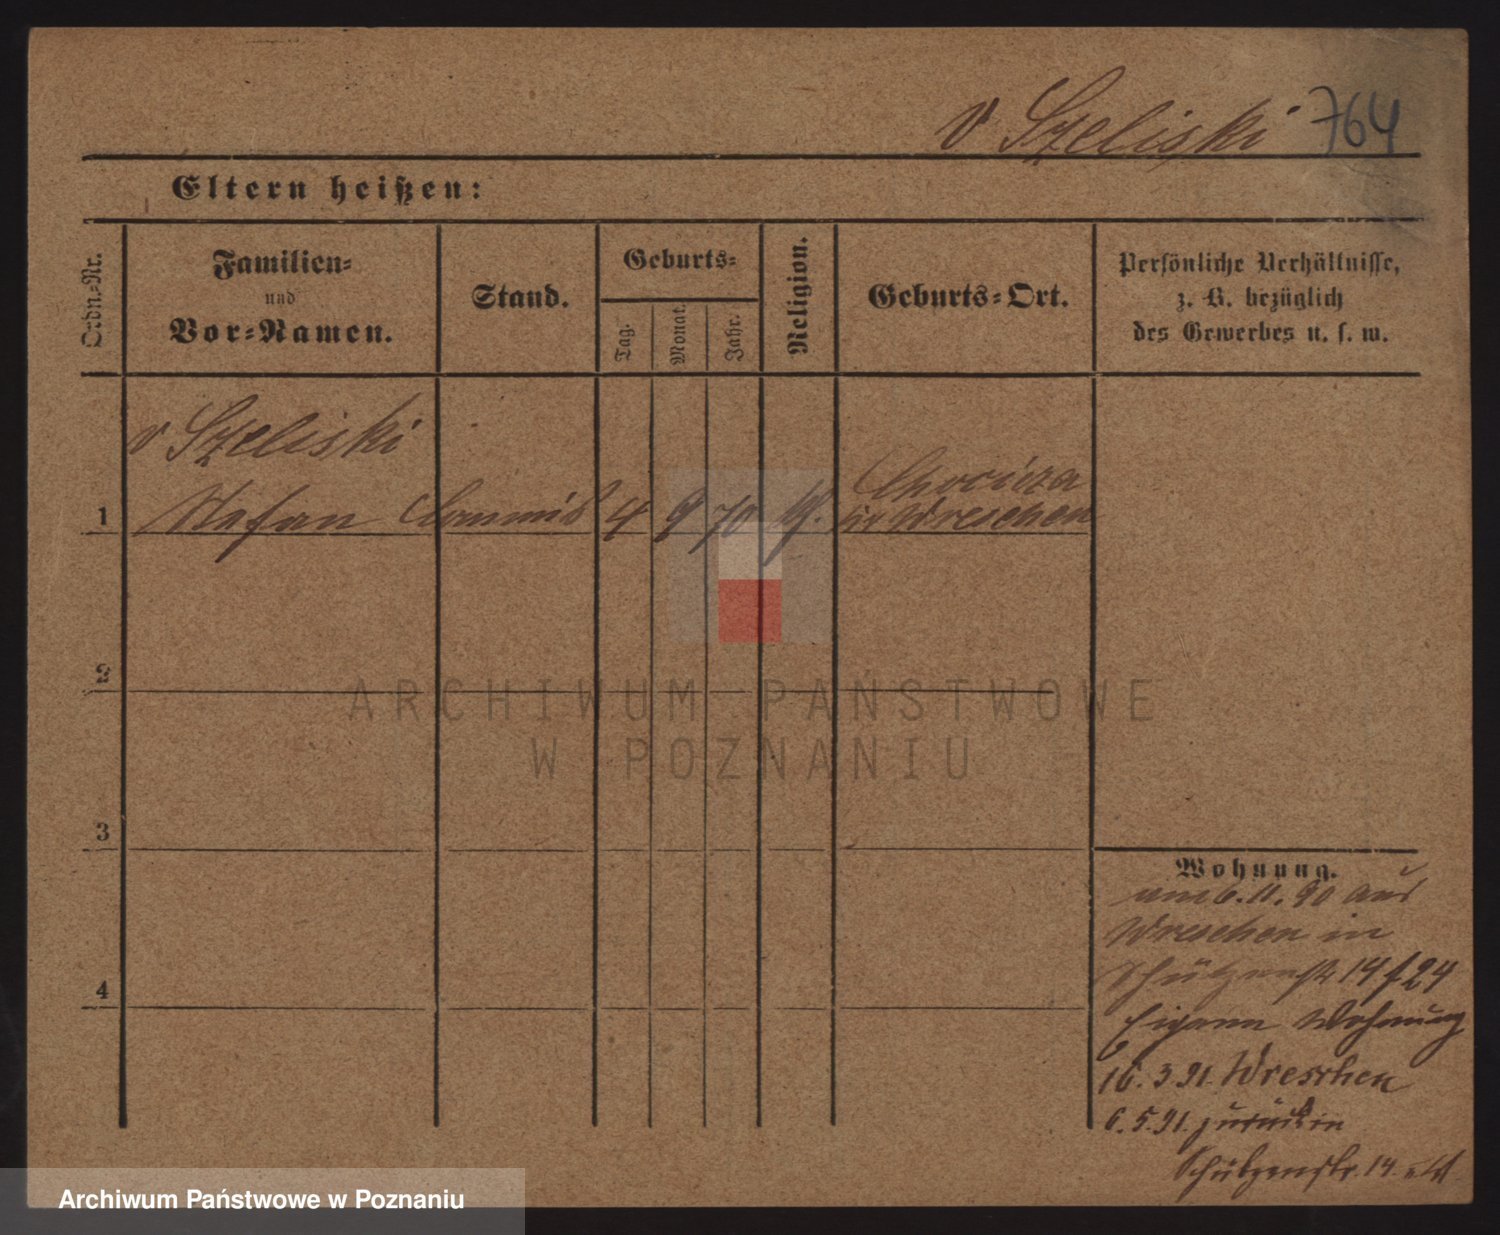 v Szeliski 764
Eltern heißen:
Ordn.-Nr.
Familien-
und
Vor-Namen.
Stand.
Geburts-
Tag.
Monat.
Jahr.
Religion.
Geburts-Ort.
Persönliche Verhältnisse,
z. B. bezüglich
des Gewerbes u. s. w.
v Szeliski
Chocicza
1 Stefan Commis 4 9 70 Wreschen
2
3
4
Wohnung.
am 6.11.90 aus
Wreschen in
Schützenstr 14
Wohnung
16.3.91. Wreschen
6.5.91. zurück in
Schützenstr. 14.
ARCHIWUM PAŃSTWOWE
W POZNANIU
Archiwum Państwowe w Poznaniu